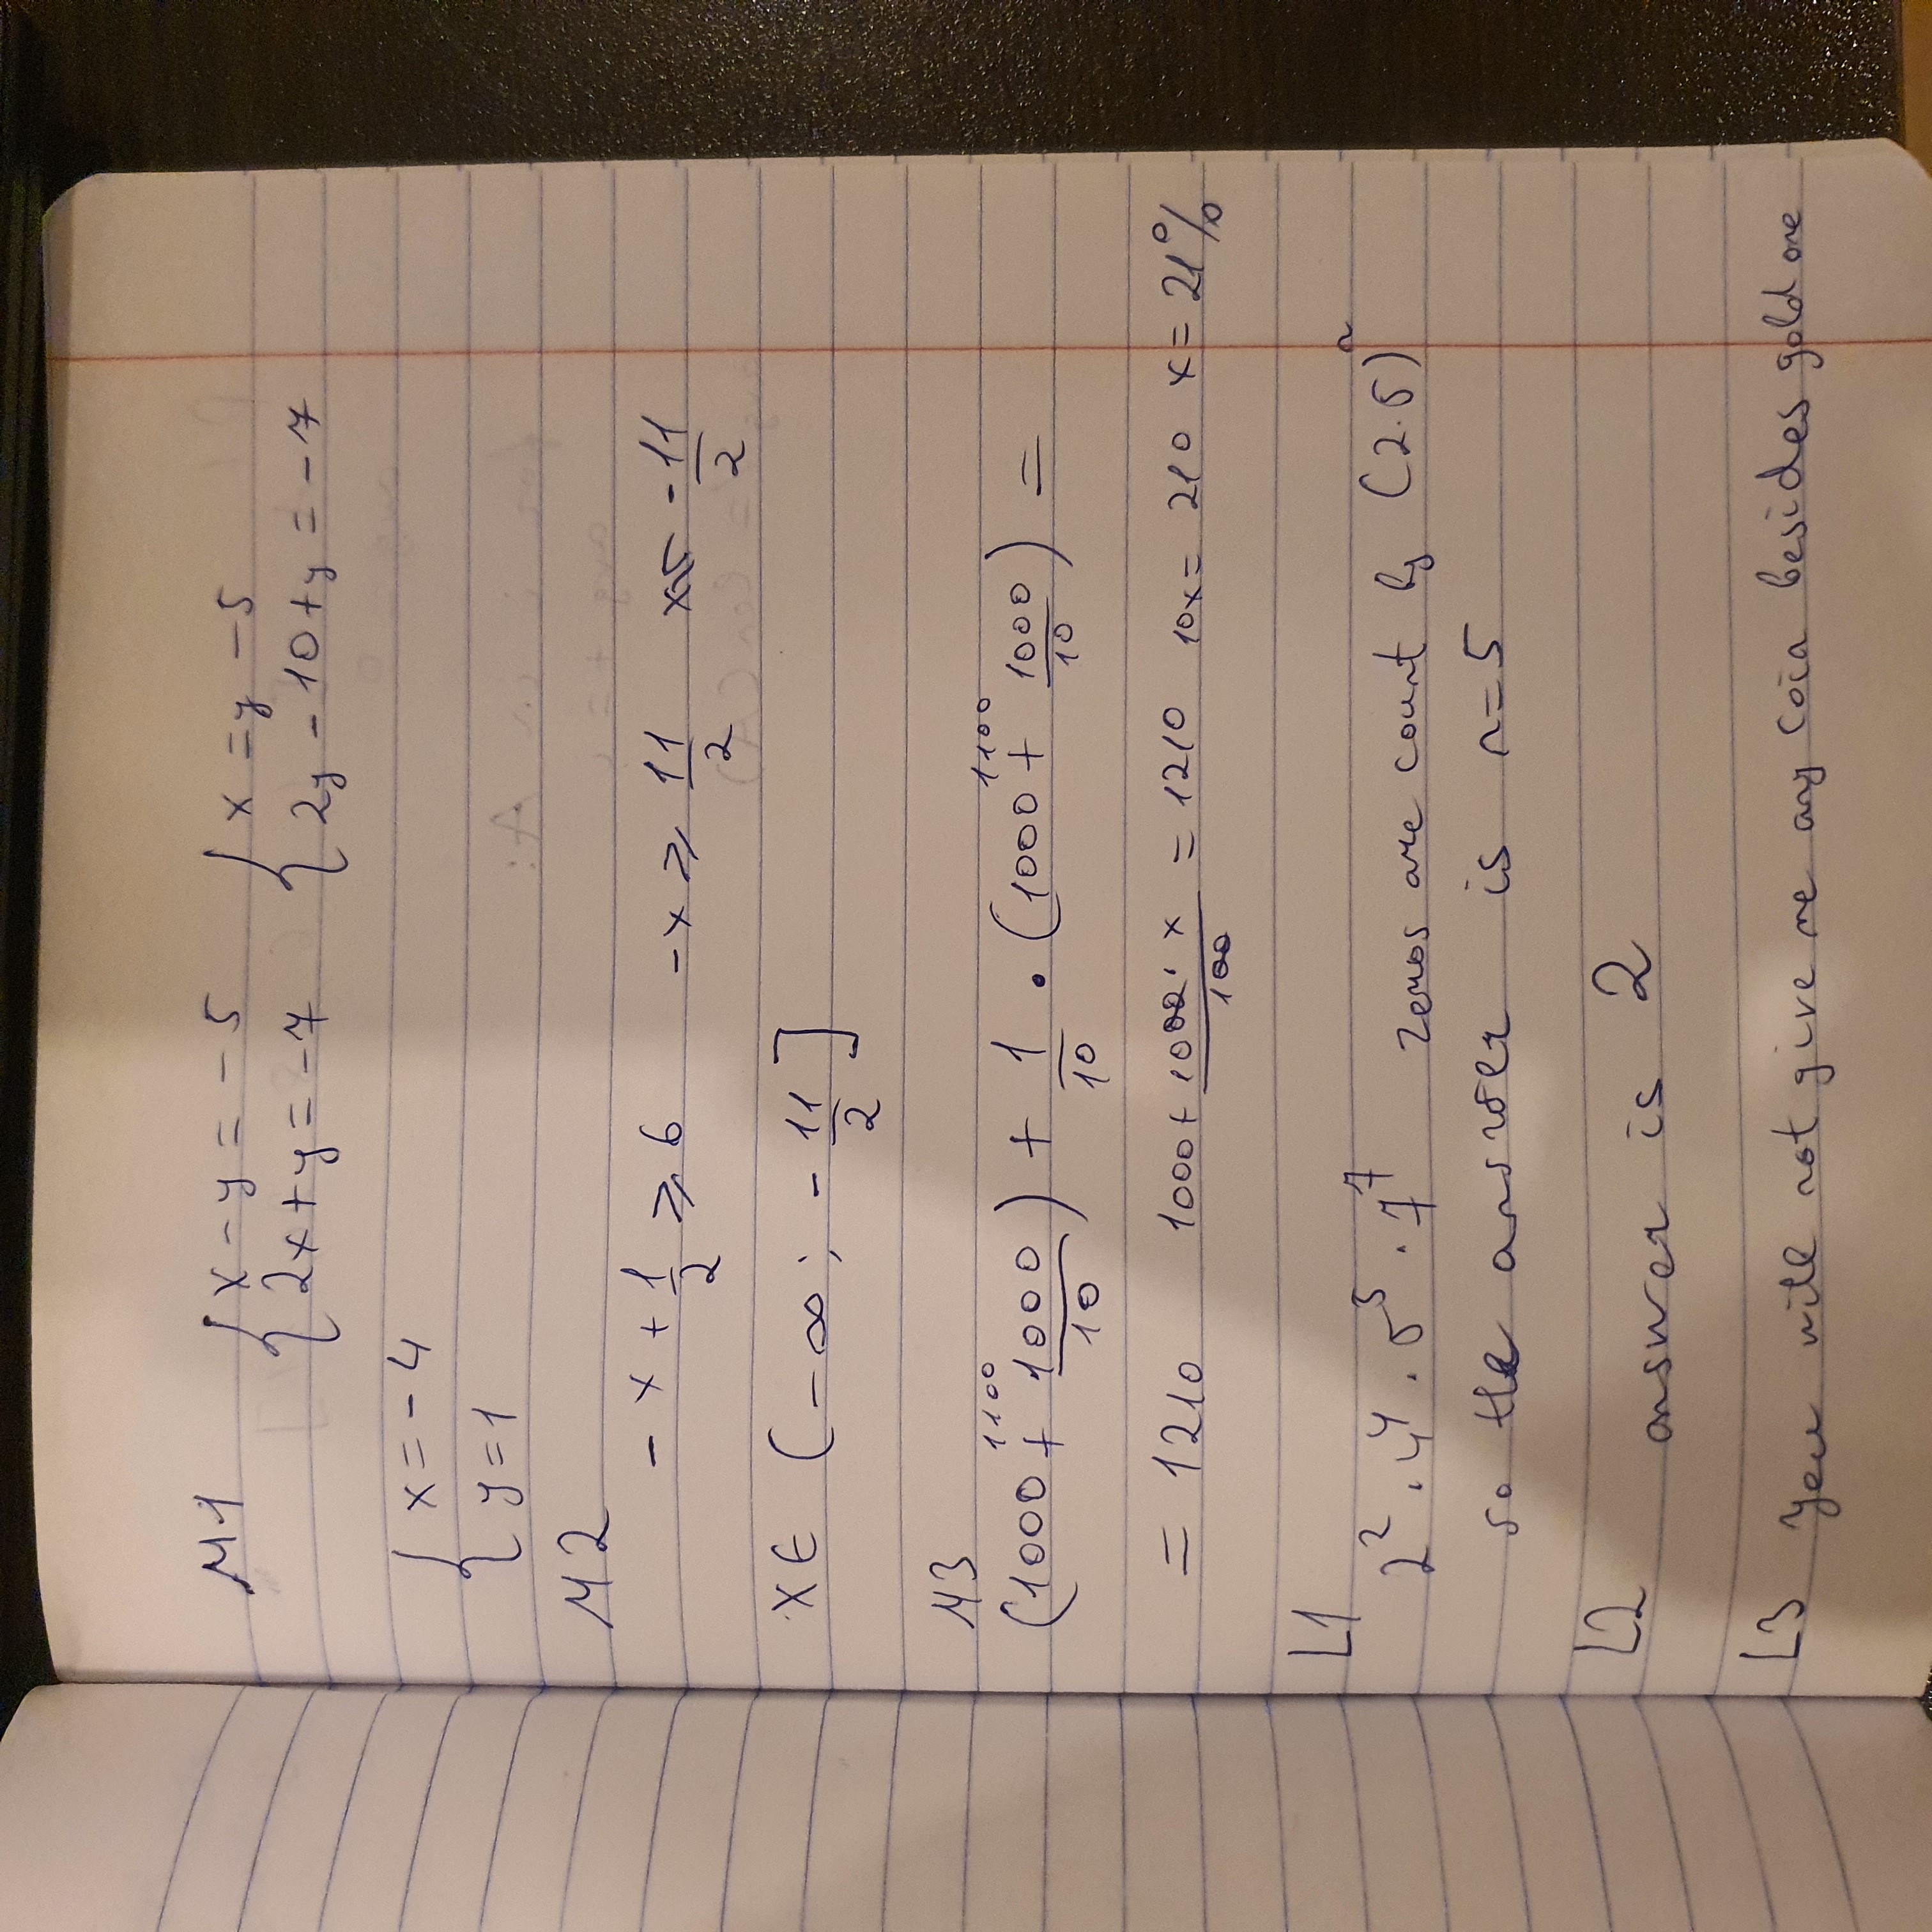 M1 { x - y = -5 { x = y - 5
2x + y = -7 2y - 10 + y = -7
{ x = -4
y = 1
M2
-x + 1/2 ⩾ 6 -x ⩾ 11/2 x ⩽ -11/2
x ∈ (-∞; -11/2]
M3
1100 1100
(1000 + 1000/10) + 1/10 · (1000 + 1000/10) =
= 1210 1000 + 1000 · x/100 = 1210 10x = 210 x = 21%
L1
2² · 4⁴ · 5⁵ · 7⁷ zeros are count by (2·5)ⁿ
so the answer is n=5
L2 answer is 2
L3 You will not give me any coin besides gold one